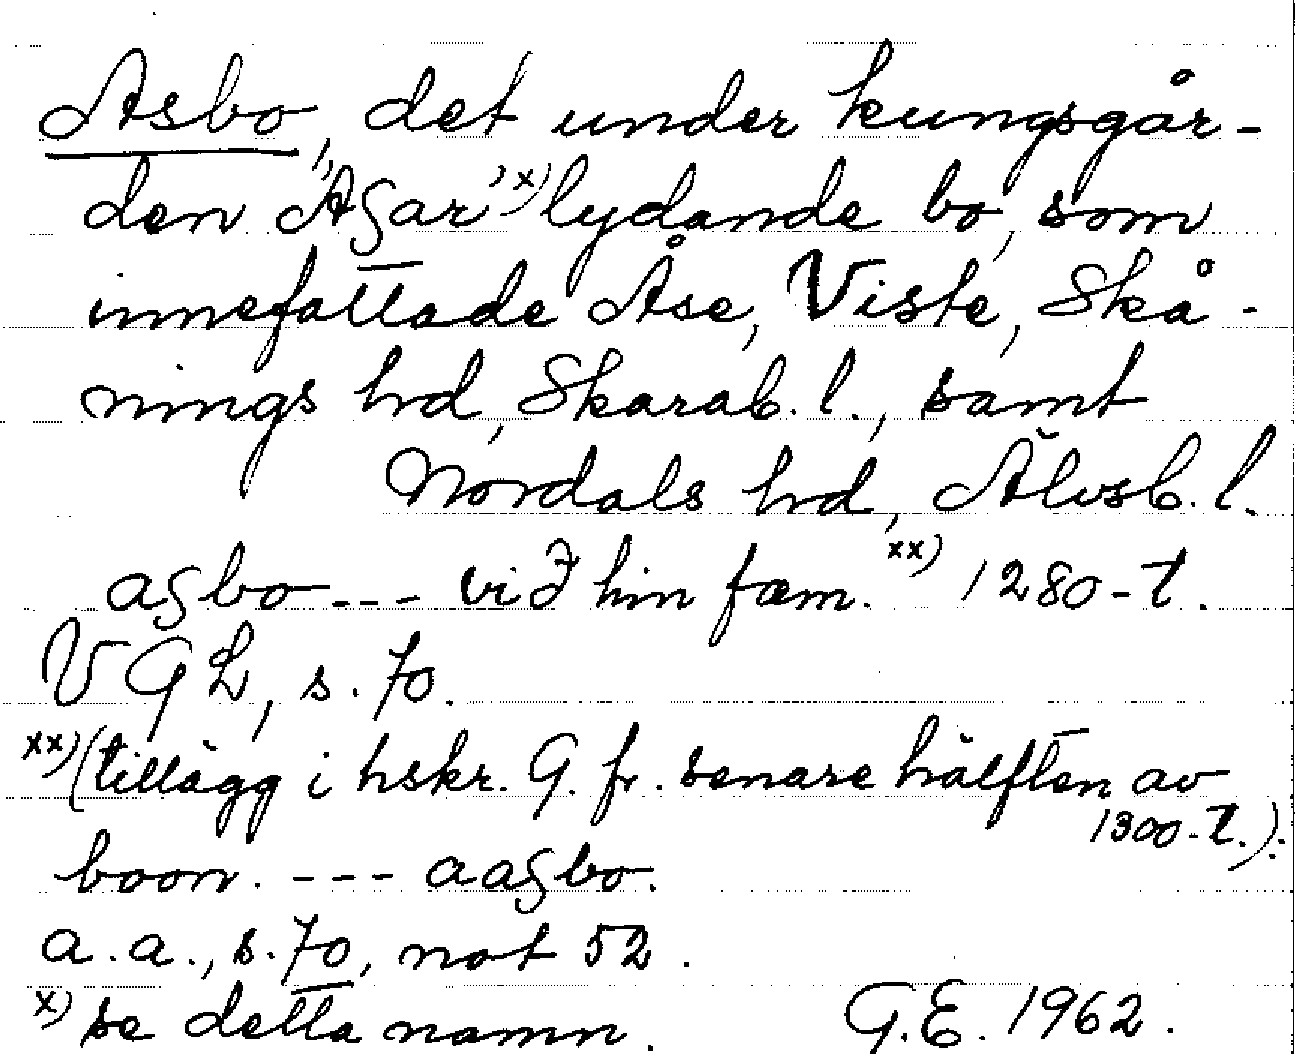 Asbo, det under kungsgår-
den 'Aʒar' x) lydande bo, som
innefattade Åse, Viste, Skå-
nings hd, Skarab. l., samt
Nordals hd, Älvsb. l.
aʒbo --- við hin fæm. xx) 1280-t.
VGL, s. 70.
xx) (tillägg i hskr. G. fr. senare hälften av
1300-t.):
boon. --- aaʒbo.
a.a., s. 70, not 52.
x) se detta namn. G.E. 1962.